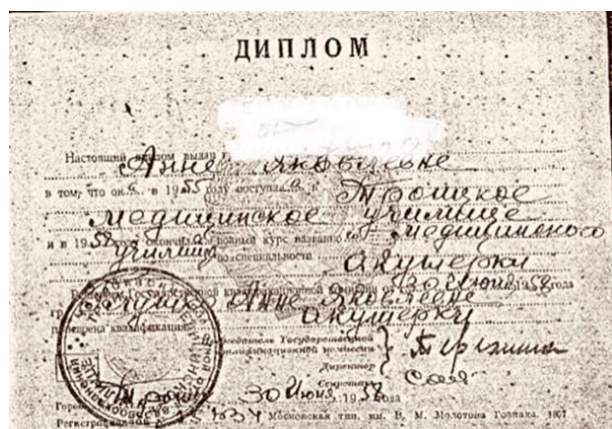 ДИПЛОМ
Настоящий диплом выдан
Анне Яковлевне
в том, что он а в 1955 году поступил а в Троицкое
медицинское училище
и в 1958 году окончил а полный курс названного медицинского
училища по специальности
акушерки
Решением Государственной квалификационной комиссии от 30 июня 1958 года
Анне Яковлевне
присвоена квалификация акушерки
Председатель Государственной
квалификационной комиссии
Директор
Секретарь
Город Троицк 30 июня 1958 года
Регистрационный №
Московская тип. им. В. М. Молотова Гознака. 1957